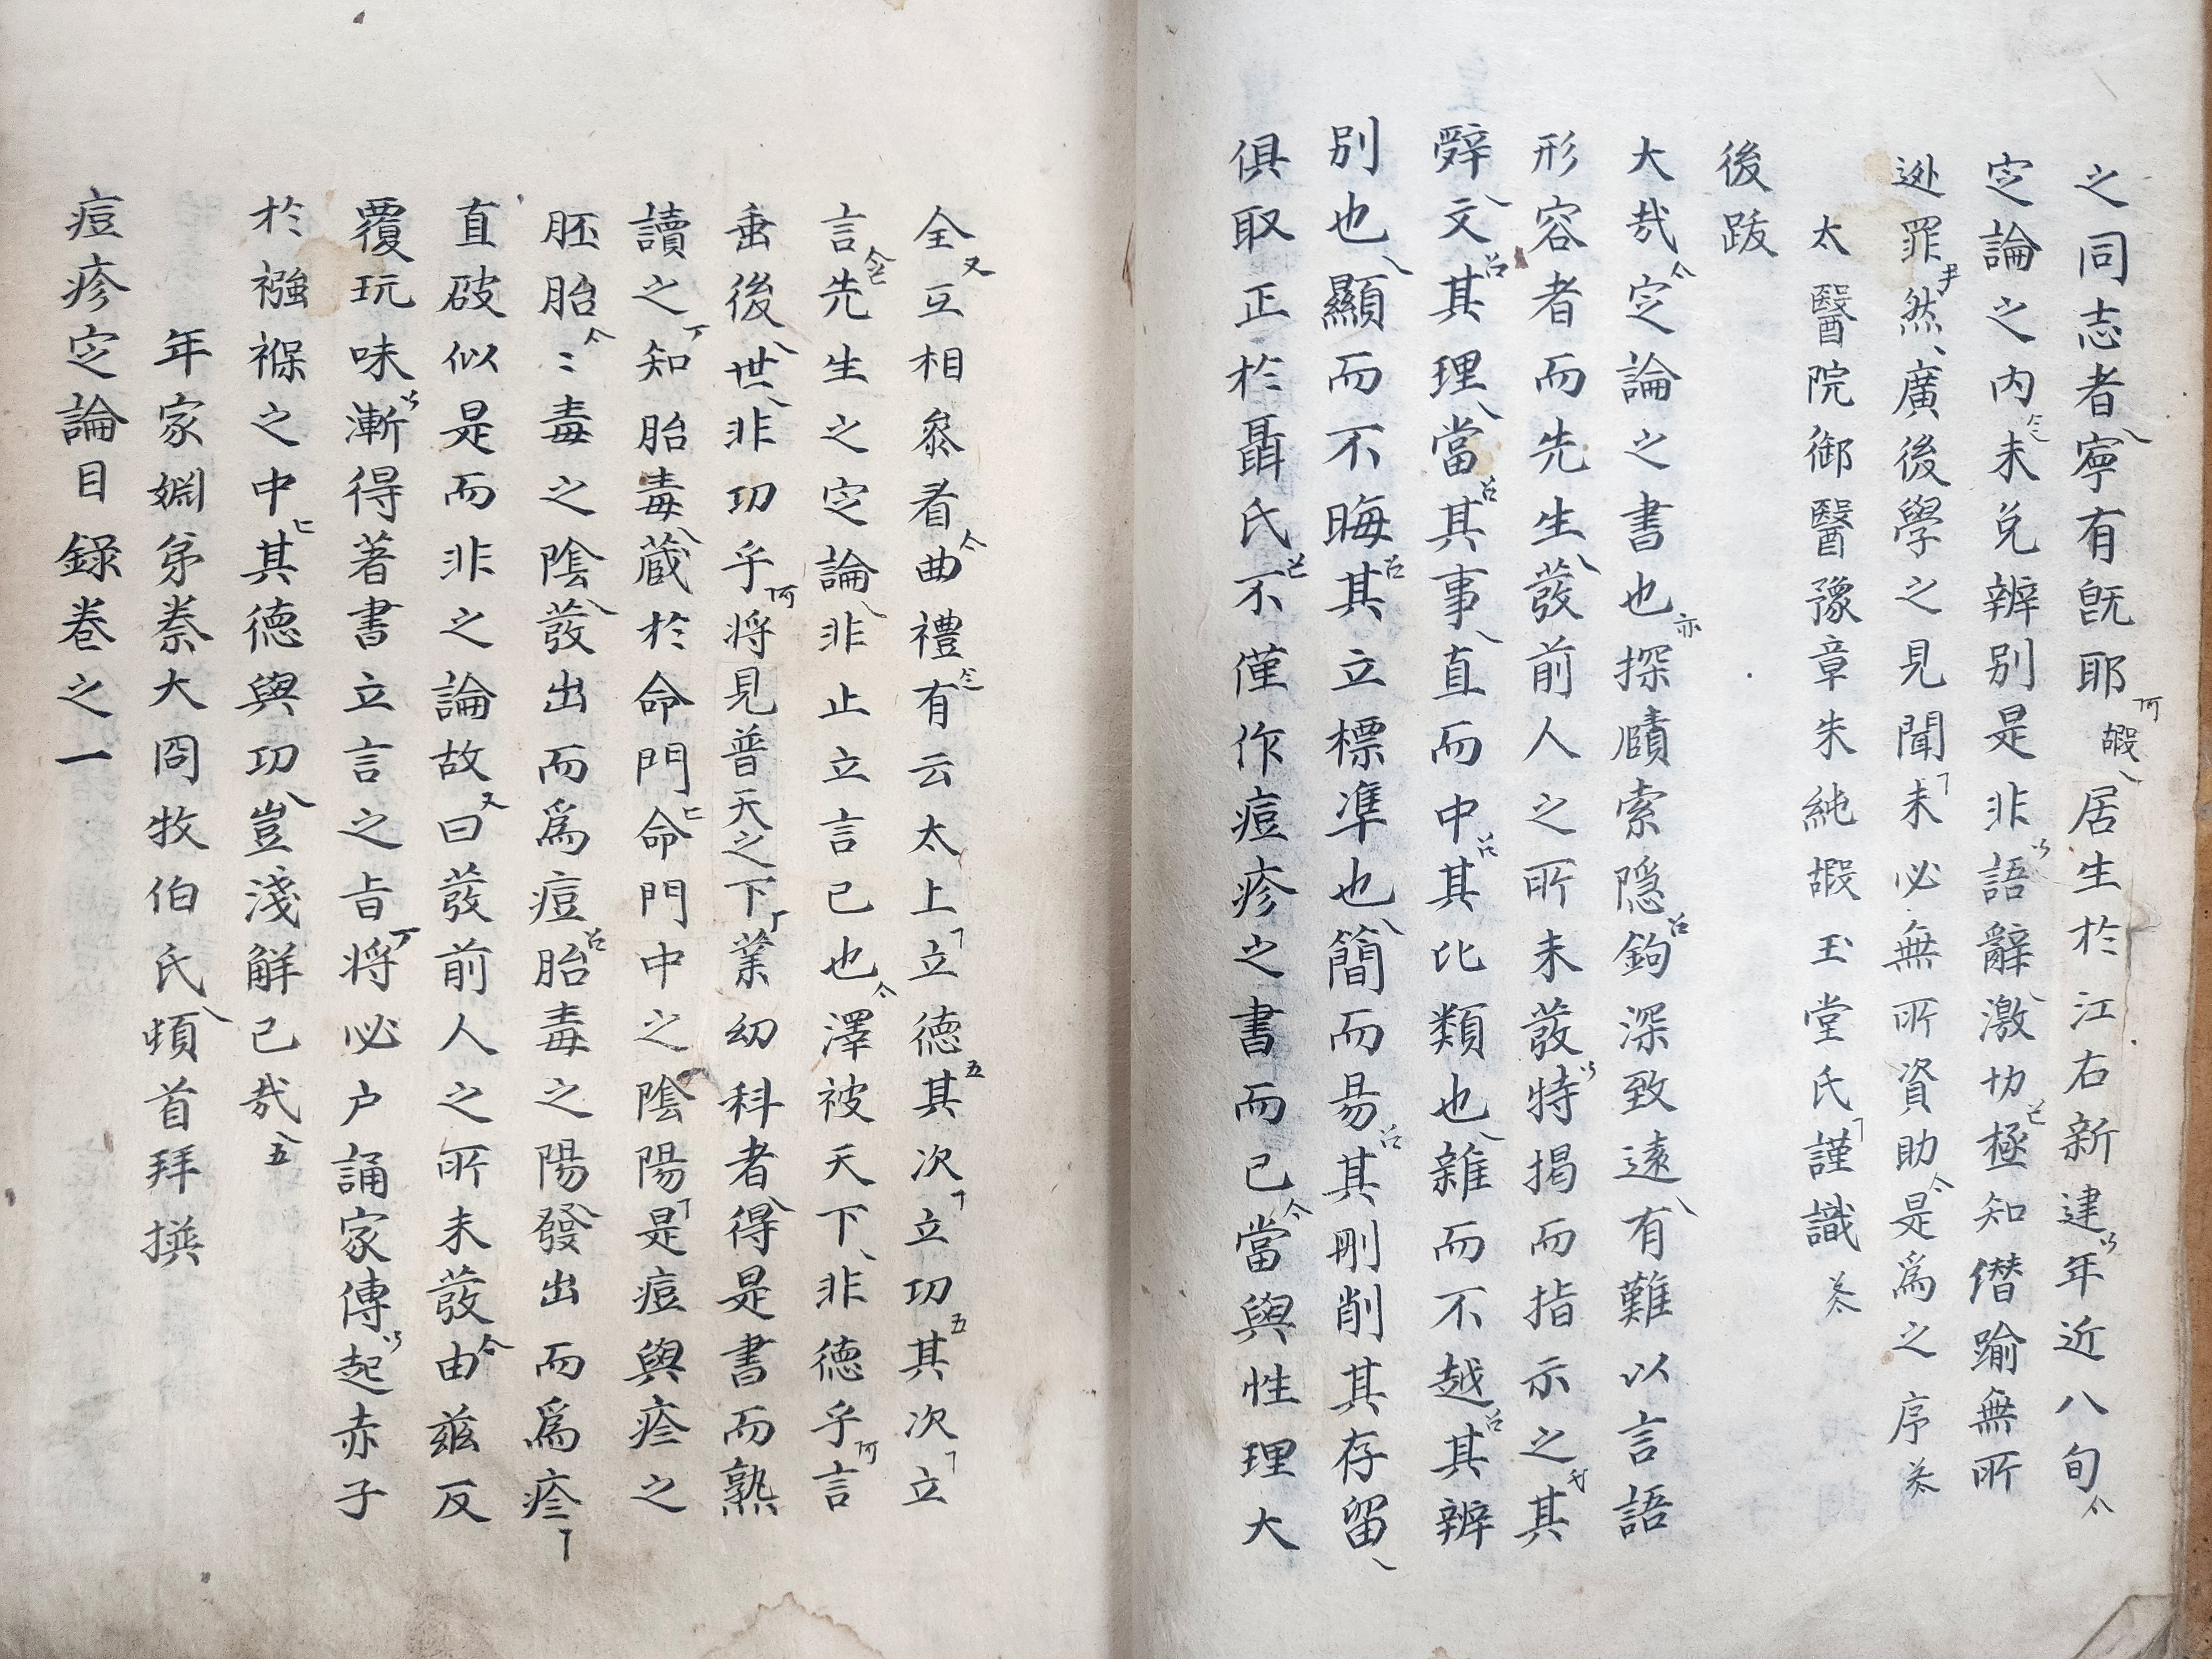 之同志者寧有旣耶嘏居生於江右新建年近八旬
定論之内未免辨別是非語辭激切極知僭踰無所
逃罪然廣後學之見聞未必無所資助是爲之序
太醫院御醫豫章朱純嘏玉堂氏謹識
後跋
大哉定論之書也探賾索隐鉤深致遠有難以言語
形容者而先生發前人之所未發特揭而指示之其
辭文其理當其事直而中其比類也雜而不越其辨
別也顯而不晦其立標準也簡而昜其刪削其存留
俱取正於聶氏不僅作痘疹之書而已當與性理大
全互相叅看曲禮有云太上立德其次立功其次立
言先生之定論非止立言已也澤被天下非德乎言
垂後世非功乎将見普天之下業幼科者得是書而熟
讀之知胎毒蔵於命門命門中之陰陽是痘與疹之
胚胎〻毒之陰發出而爲痘胎毒之陽發出而爲疹
直破似是而非之論故曰發前人之所未發由兹反
覆玩味漸得著書立言之旨将必户誦家傳起赤子
於襁褓之中其德與功豈淺觧已哉
年家婣弟㮤大冏牧伯氏頓首拜撰
痘疹定論目録卷之一